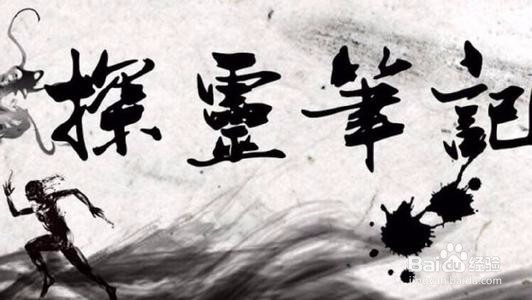 探靈筆記
Baidu经验